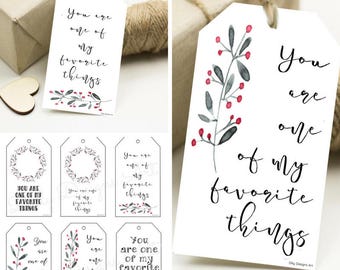 You are
one of
my
favorite
things
You
are
one
of my
favorite
things
YOU ARE
ONE OF MY
FAVORITE
THINGS
You are
one of my
favorite
things
You are
one of
my
favorite
things
You are
one of
You
are
one
You are
one of my
favorite